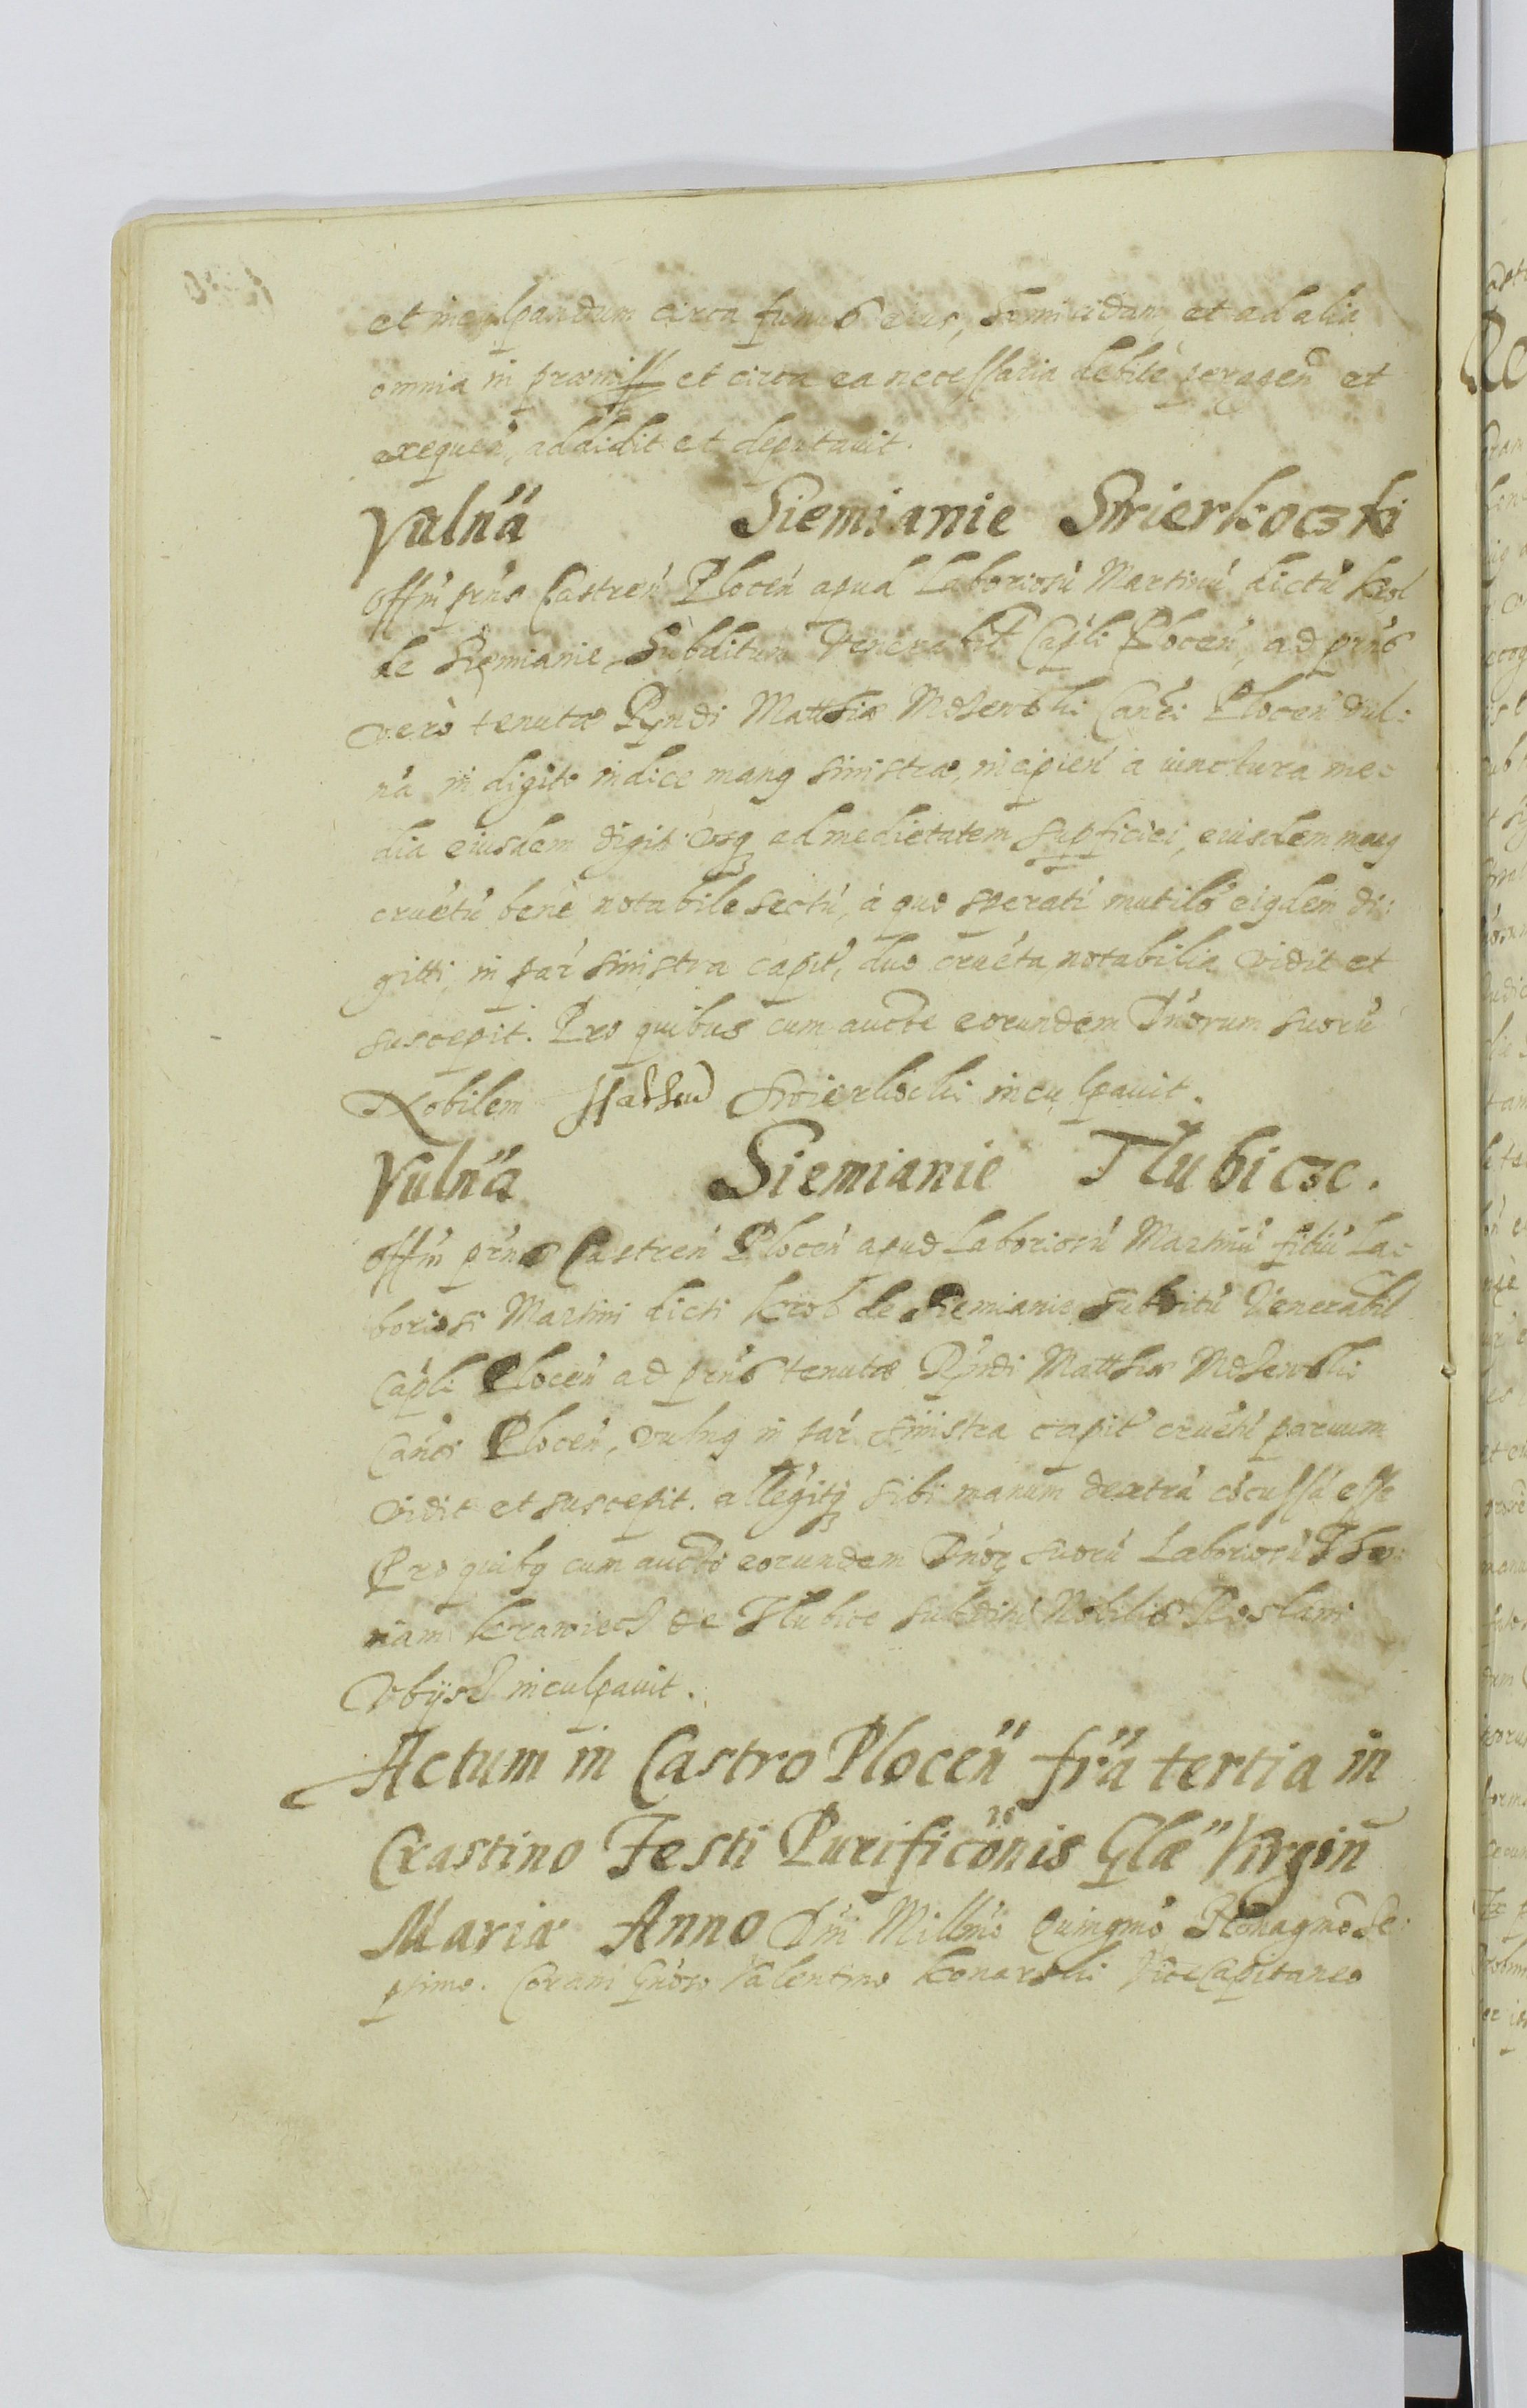 et inculpandum circa funus eius, homicidam, et ad alia
omnia in præmiss et circa ea necessaria debite peragen et
exequen, addidit et deputauit.
Vulna Siemianie Swierkoczki
Offm prns Castren Plocen apud Laboriosu Martinu dictu Krol
de Siemianie, Subditum Venerabil Capli Plocen, ad prns
vero tenutæ Rndi Matthiæ Canci Plocen vul:
na in digito indice manq sinistræ, incipien a iunctura me-
dia eiusdem digiti usq ad medietatem supficiei, eiusdem manq
cruetu bene notabile sectu, à quo sperati mutilo eiqdem di:
gitti, in par sinistra capit, duo crueta notabilia vidit et
suscepit. Pro quibus cum aucte eorundem Dnorum suoru
Nobilem Swierkocki inculpauit.
Vulna Siemianie Tlubicze.
Offm prns Castren Plocen apud Laboriosu Martinu filiu La-
boriosi Martini dicti Krol de Siemianie, Subditu Venerabil
Capli Plocen ad prns tenutæ Rndi Matthiæ
Canci Plocen, vulnq in par sinistra capit cruetu paruum
vidit et suscepit. allegitq sibi manum dextra cocussa esse
Pro quibq cum aucte eorundem Dnor suoru Laboriosu Tho:
mam Krawiech de Tlubice subditu Nobilis Roslani
inculpauit.
Actum in Castro Plocen fria tertia in
Crastino Festi Purificonis Glæ Virgin
Mariæ Anno Dni Millmo Quingmo Nonagmo Se:
ptimo. Coram Gnoso Valentino Konarski ViceCapitaneo